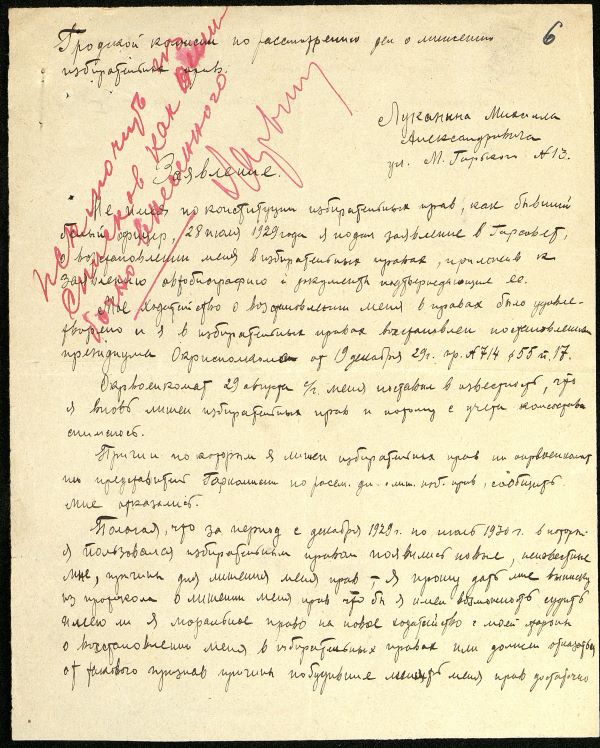 6
Городской комиссии по рассмотрению дел о лишении
избирательных прав.
Луканина Михаила
Александровича
ул. М. Горького №13.
Заявление.
Не имея по конституции избирательных прав, как бывший
белый офицер, 28 июня 1929 года я подал заявление в Горсовет,
о восстановлении меня в избирательных правах, приложив к
заявлению автобиографию и документы подтверждающие ее.
Мое ходатайство о восстановлении меня в правах было удовле-
творено и я в избирательных правах восстановлен постановлением
президиума Окрисполкома от 19 декабря 29 г. пр. №714 §55 п. 17.
Окрвоенкомат 29 августа с/г. меня поставил в известность, что
я вновь лишен избирательных прав и потому с учета комсостава
снимаюсь.
Причин по которым я лишен избирательных прав ни окрвоенкомат
ни представитель Горкомиссии по рассм. дел о лиш. изб. прав, сообщить
мне отказались.
Полагая, что за период с декабря 1929 г. по июль 1930 г. в котором
я пользовался избирательным правом появились новые, неизвестные
мне, причины для лишения меня прав – я прошу дать мне выписку
из протокола о лишении меня прав что бы я имел возможность судить
имею ли я моральное право на новое ходатайство с моей стороны
о восстановлении меня в избирательных правах или должен отказаться
от такового признав причины побудившие лишить меня прав достаточно
списков как